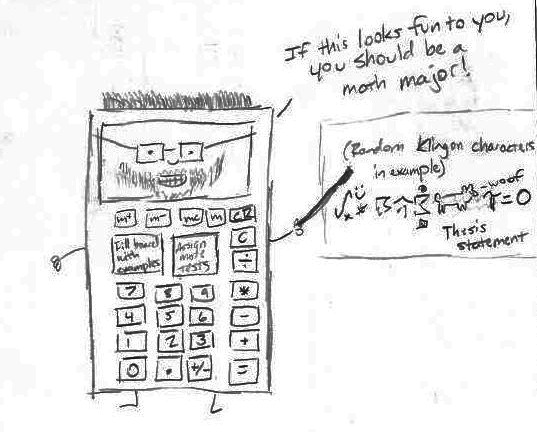 If this looks fun to you,
you should be a
math major!
(Random Klingon characters
in example)
woof
= 0
Thesis
statement
m+ m- mc m CE
C
Fill board
with
examples
Assign
more
TESTS
÷
7 8 9 *
4 5 6 -
1 2 3 +
0 . +/- =